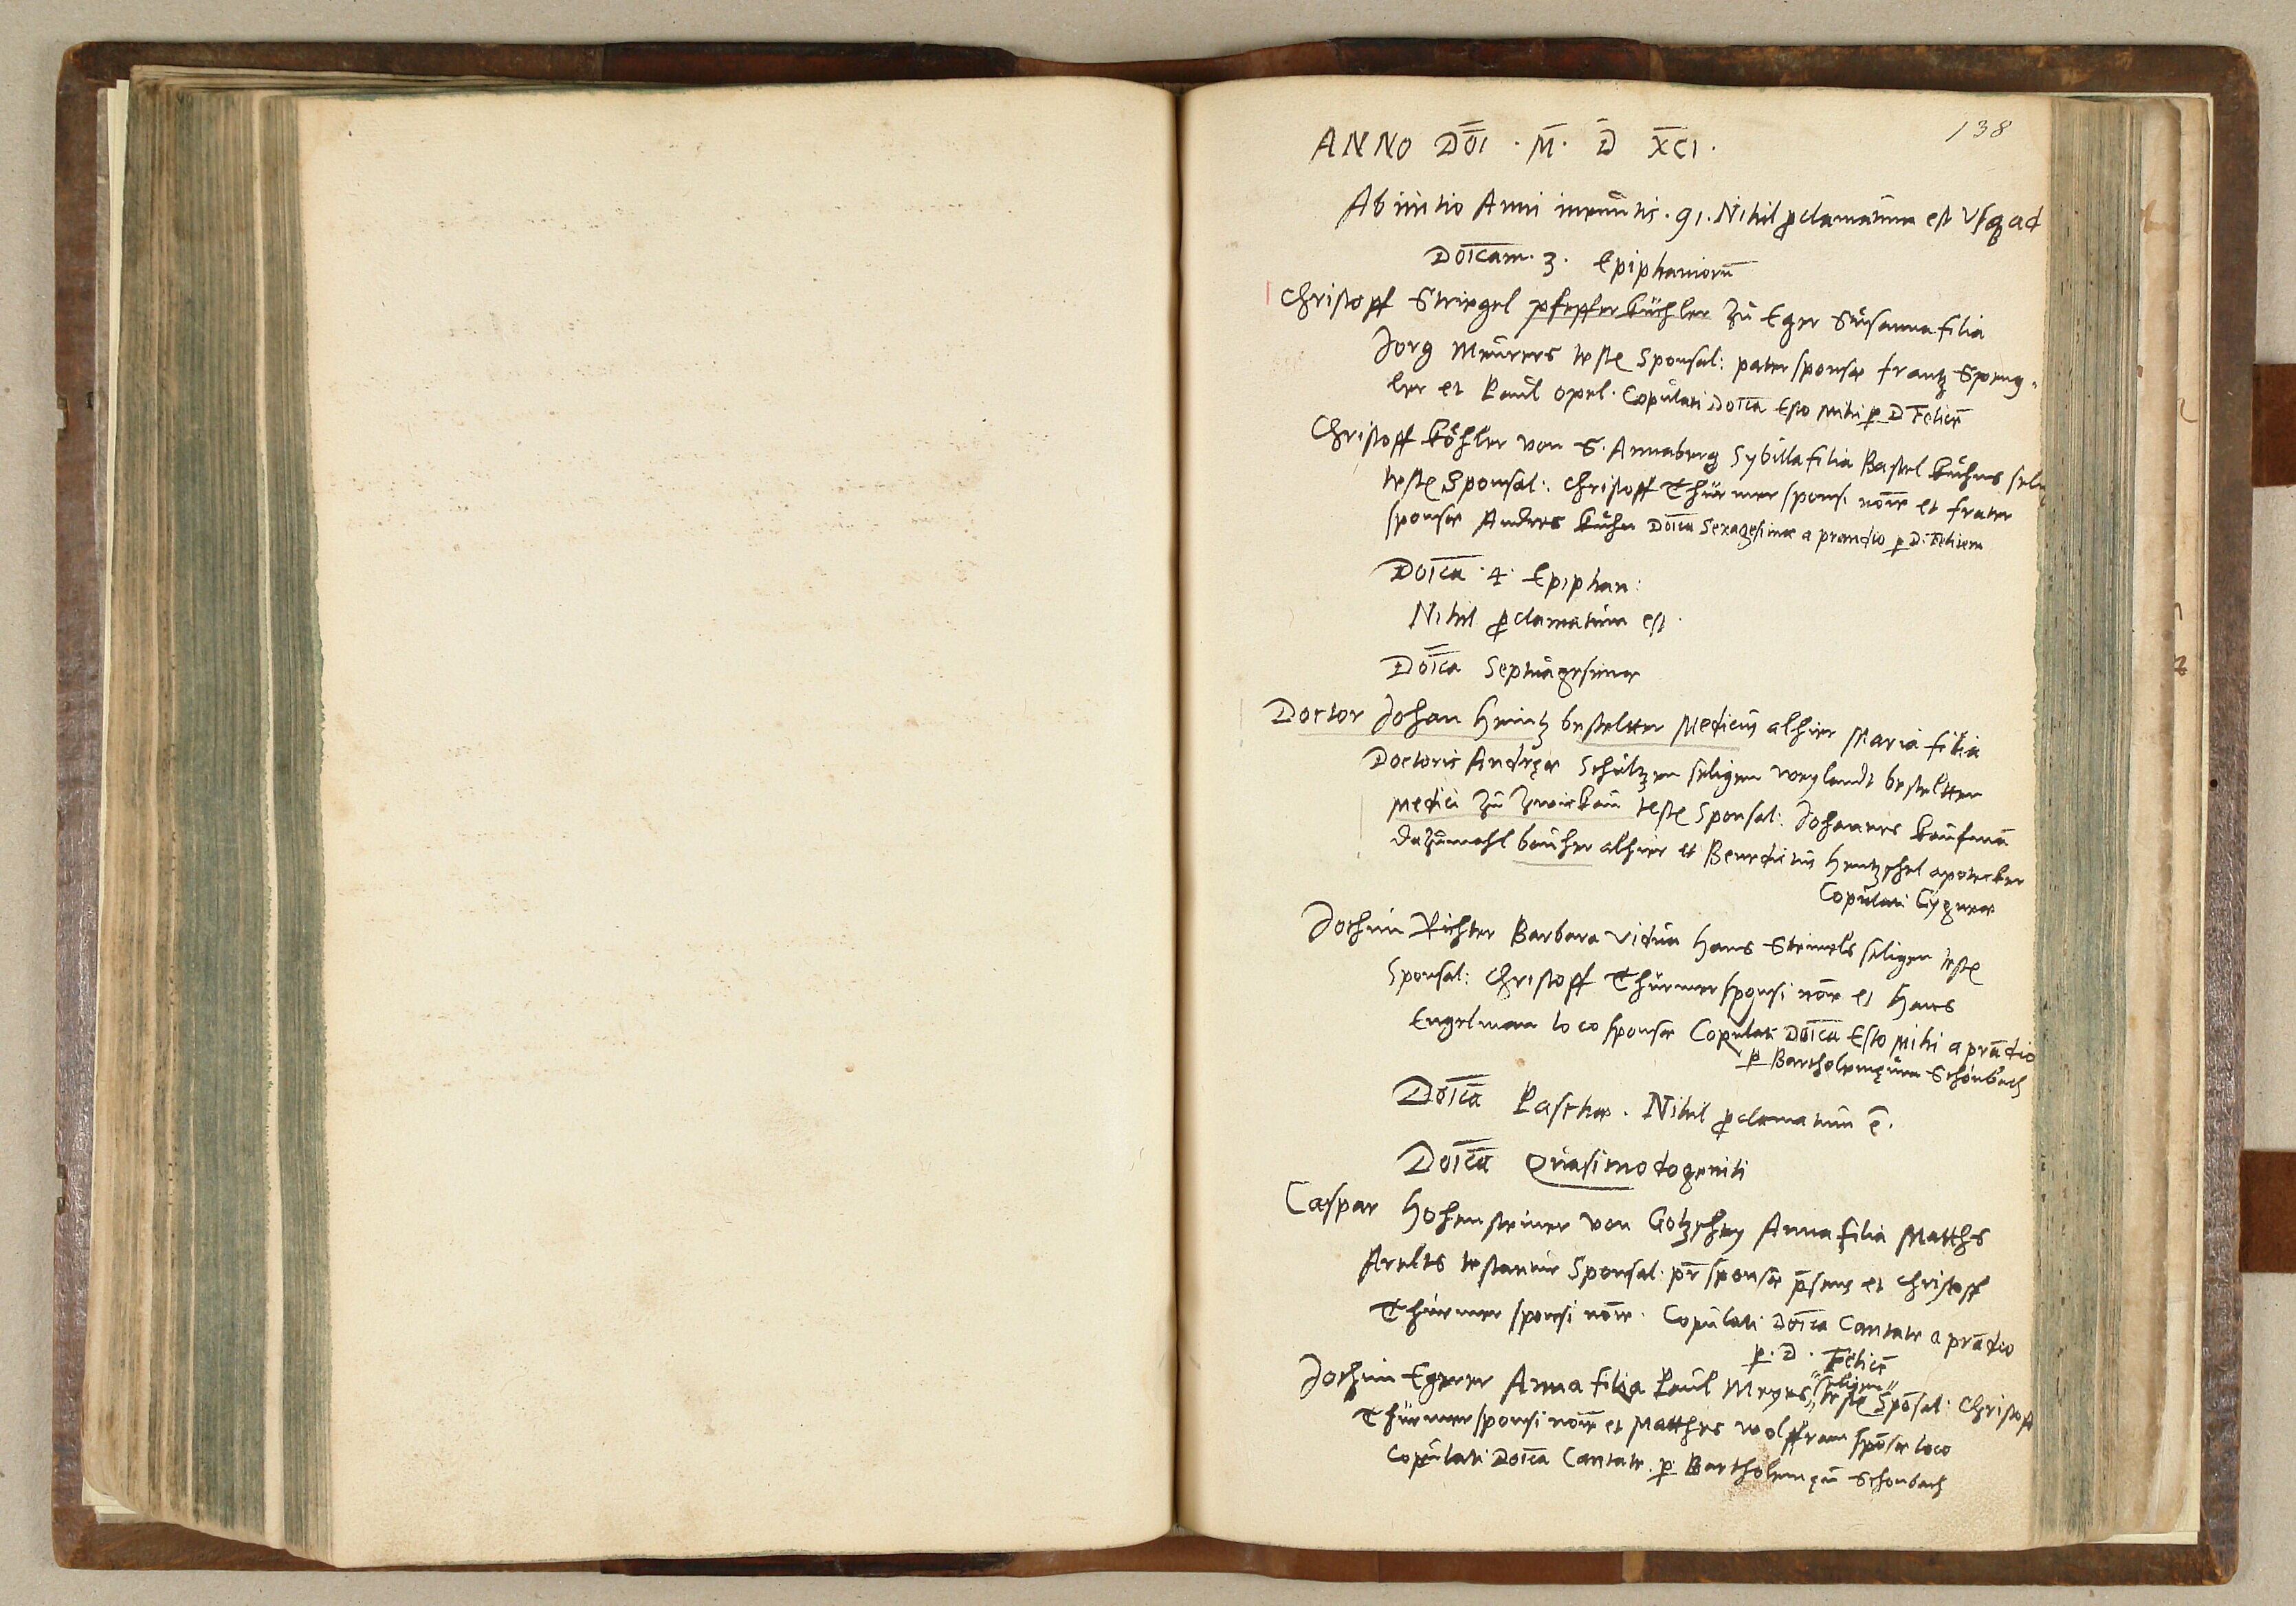 138
ANNO DOI . M . D XCI .
Ab initio Anni ineuntis . 91 . Nihil proclamatum est Usq ad
Doicam . 3 . Epiphaniorū
Christoff Striegel pfefferküchler zu Eger Susanna filia
Jorg Meurers teste Sponsal: pater sponsæ Frantz Speng-
ler et Paul Opel . Copulati Doica Esto Mihi p D Felicē
Christoff Köhler von S. Annaberg Sybilla filia Bastel Kuhns
teste Sponsal: Christoff Thürmer sponsi noīe et frater
sponsæ Andres Kuhn Doica Sexagesimæ a prandio p D. Felicem
Doica . 4 . Epiphan:
Nihil proclamatum est .
Doica Septuagesimæ
Doctor Johan Heintz bestelter Medicus alhier Maria filia
Doctoris Andreæ Schützen seligen weylandt bestelten
Medici zu Zwickau teste Sponsal: Johannes Kaufmā
dazumahl alhier et Benedictus Hentzschel apotecker
Copulati Cygneæ
Jochim Richter Barbara vidua Hans Steinels seligen teste
Sponsal: Christoff Thürmer sponsi noīe et Hans
Engelman loco sponsæ Copulati Doica Esto Mihi a prādio
p Bartholemęum Schönbach
Doica Paschæ . Nihil proclamatum ē .
Doica Quasimodogeniti
Caspar Hohensteiner von Gotzschey Anna filia Matths
Arelts testantur Sponsal: pr̄ sponsæ p̄sens et Christoff
Thürmer sponsi noīe . Copulati Doica Cantate a prādio
p . D . Felicē
Jochim Egerer Anna filia Paul Meyers "seligen" teste Spōsal: Christoff
Thürmer sponsi noīe et Matthes Wolffram spōsæ loco
Copulati Doica Cantate . p Bartholemęū Schonbach